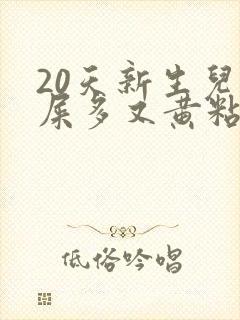 20天新生兒
屎多又黃粘
低俗吟唱